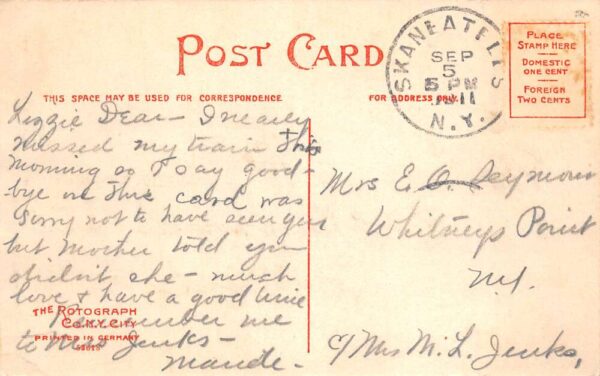 POST CARD
SKANEATELES
SEP
5
5 PM
1911
N.Y.
PLACE
STAMP HERE
DOMESTIC
ONE CENT
FOREIGN
TWO CENTS
THIS SPACE MAY BE USED FOR CORRESPONDENCE
FOR ADDRESS ONLY.
Lizzie Dear- I nearly
missed my train this
morning so I say good-
bye on this card was
sorry not to have seen you
but Mother told you
didn't she - much
love & have a good time
Remember me
to Mrs Jenks-
Maude-
THE ROTOGRAPH
CO., N.Y. CITY
PRINTED IN GERMANY
Mrs E. O. Seymour
Whitneys Point
N.Y.
c/ Mrs M. L. Jenks,